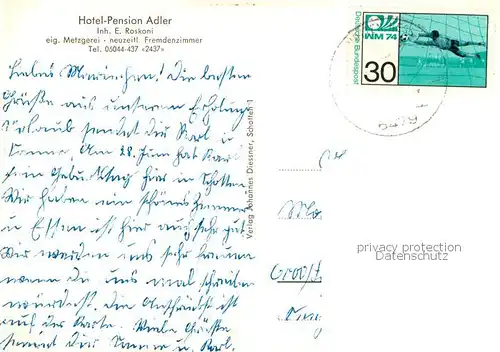 Hotel-Pension Adler
Inh. E. Roskoni
eig. Metzgerei · neuzeitl. Fremdenzimmer
Tel. 06044-437 »2437«
Liebes Marinchen! Die besten
Grüße aus unserem Erholungs
Urlaub sendet Dir Karl u
Hanne. Am 28. Juni hat Karl
sein Geburtstag hier in Schotten
Wir haben ein schönes Zimmer
u Essen ist hier auch sehr gut
Wir werden uns sehr freuen
wenn Du uns mal schreiben
würdest. Die Anschrift ist
auf der Karte. Viele Grüße
sendet Dir Hanne u. Karl.
Verlag Johannes Diessner, Schotten 1
Deutsche Bundespost
WM 74
30
6479
privacy protection
Datenschutz